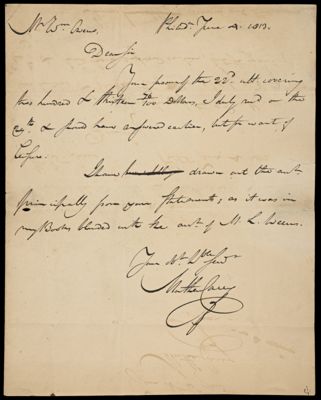 Mr Wm. Owens, Philada. June 4. 1813.
Dear sir
Your favour of the 22d. ult. covering
two hundred & thirteen Dollars, I duly recd. on the
24th. & should have answered earlier, but for want of
leisure.
I have drawn out the act.
principally from your Statement; as it was in
my Books blended with the act. of M. L. Weems.
Your obt. hble servt
Mathew Carey